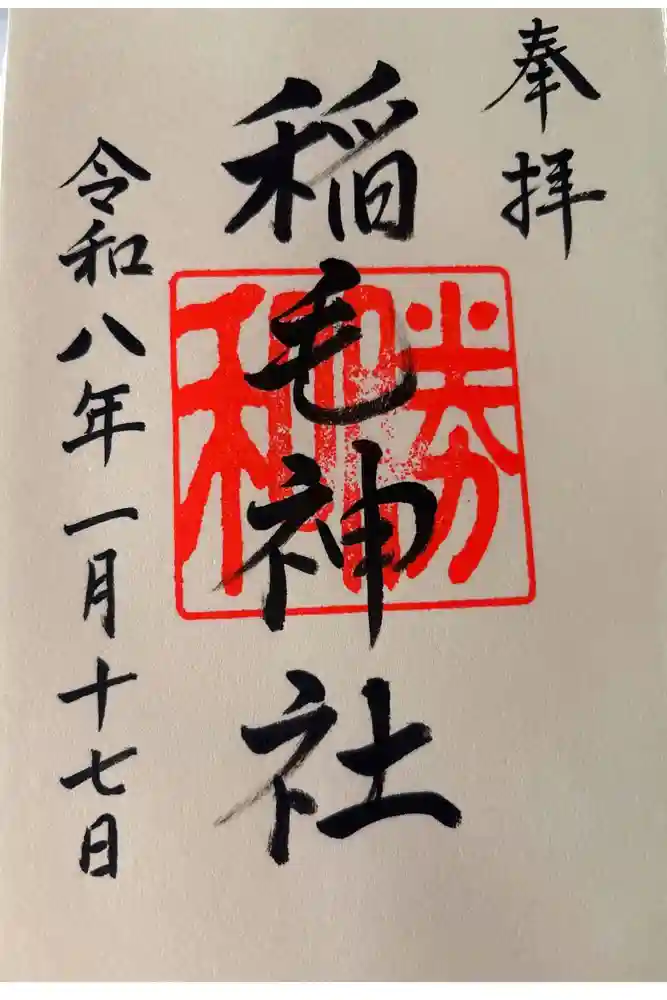 奉拝
稲毛神社
勝和
令和八年一月十七日